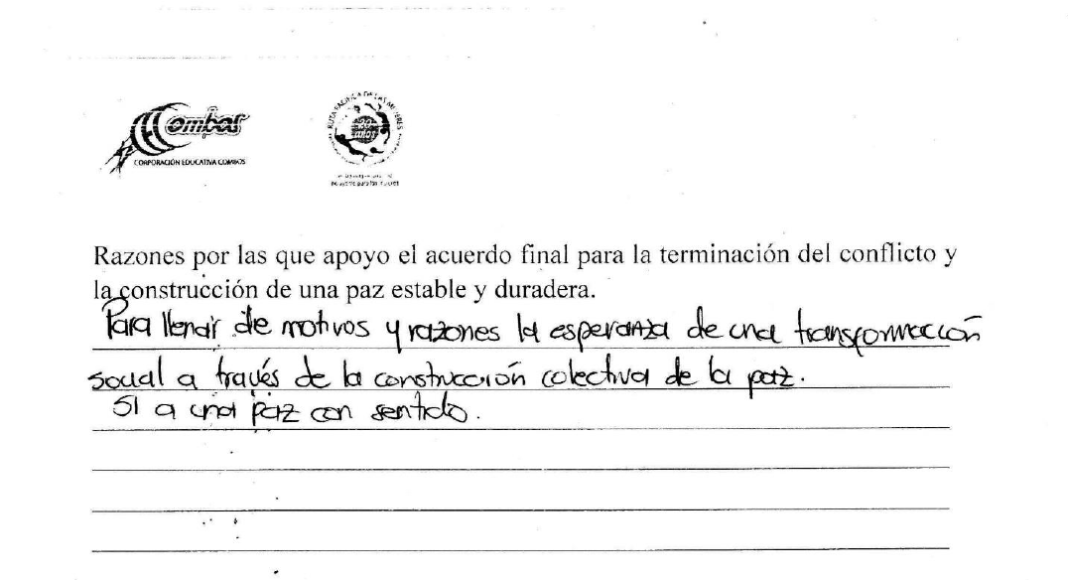 Combos
CORPORACIÓN EDUCATIVA COMBOS
RUTA PACÍFICA DE LAS MUJERES
20 años
Razones por las que apoyo el acuerdo final para la terminación del conflicto y
la construcción de una paz estable y duradera.
Para llenar de motivos y razones la esperanza de una transformación
social a través de la construcción colectiva de la paz.
SI a una paz con sentido.